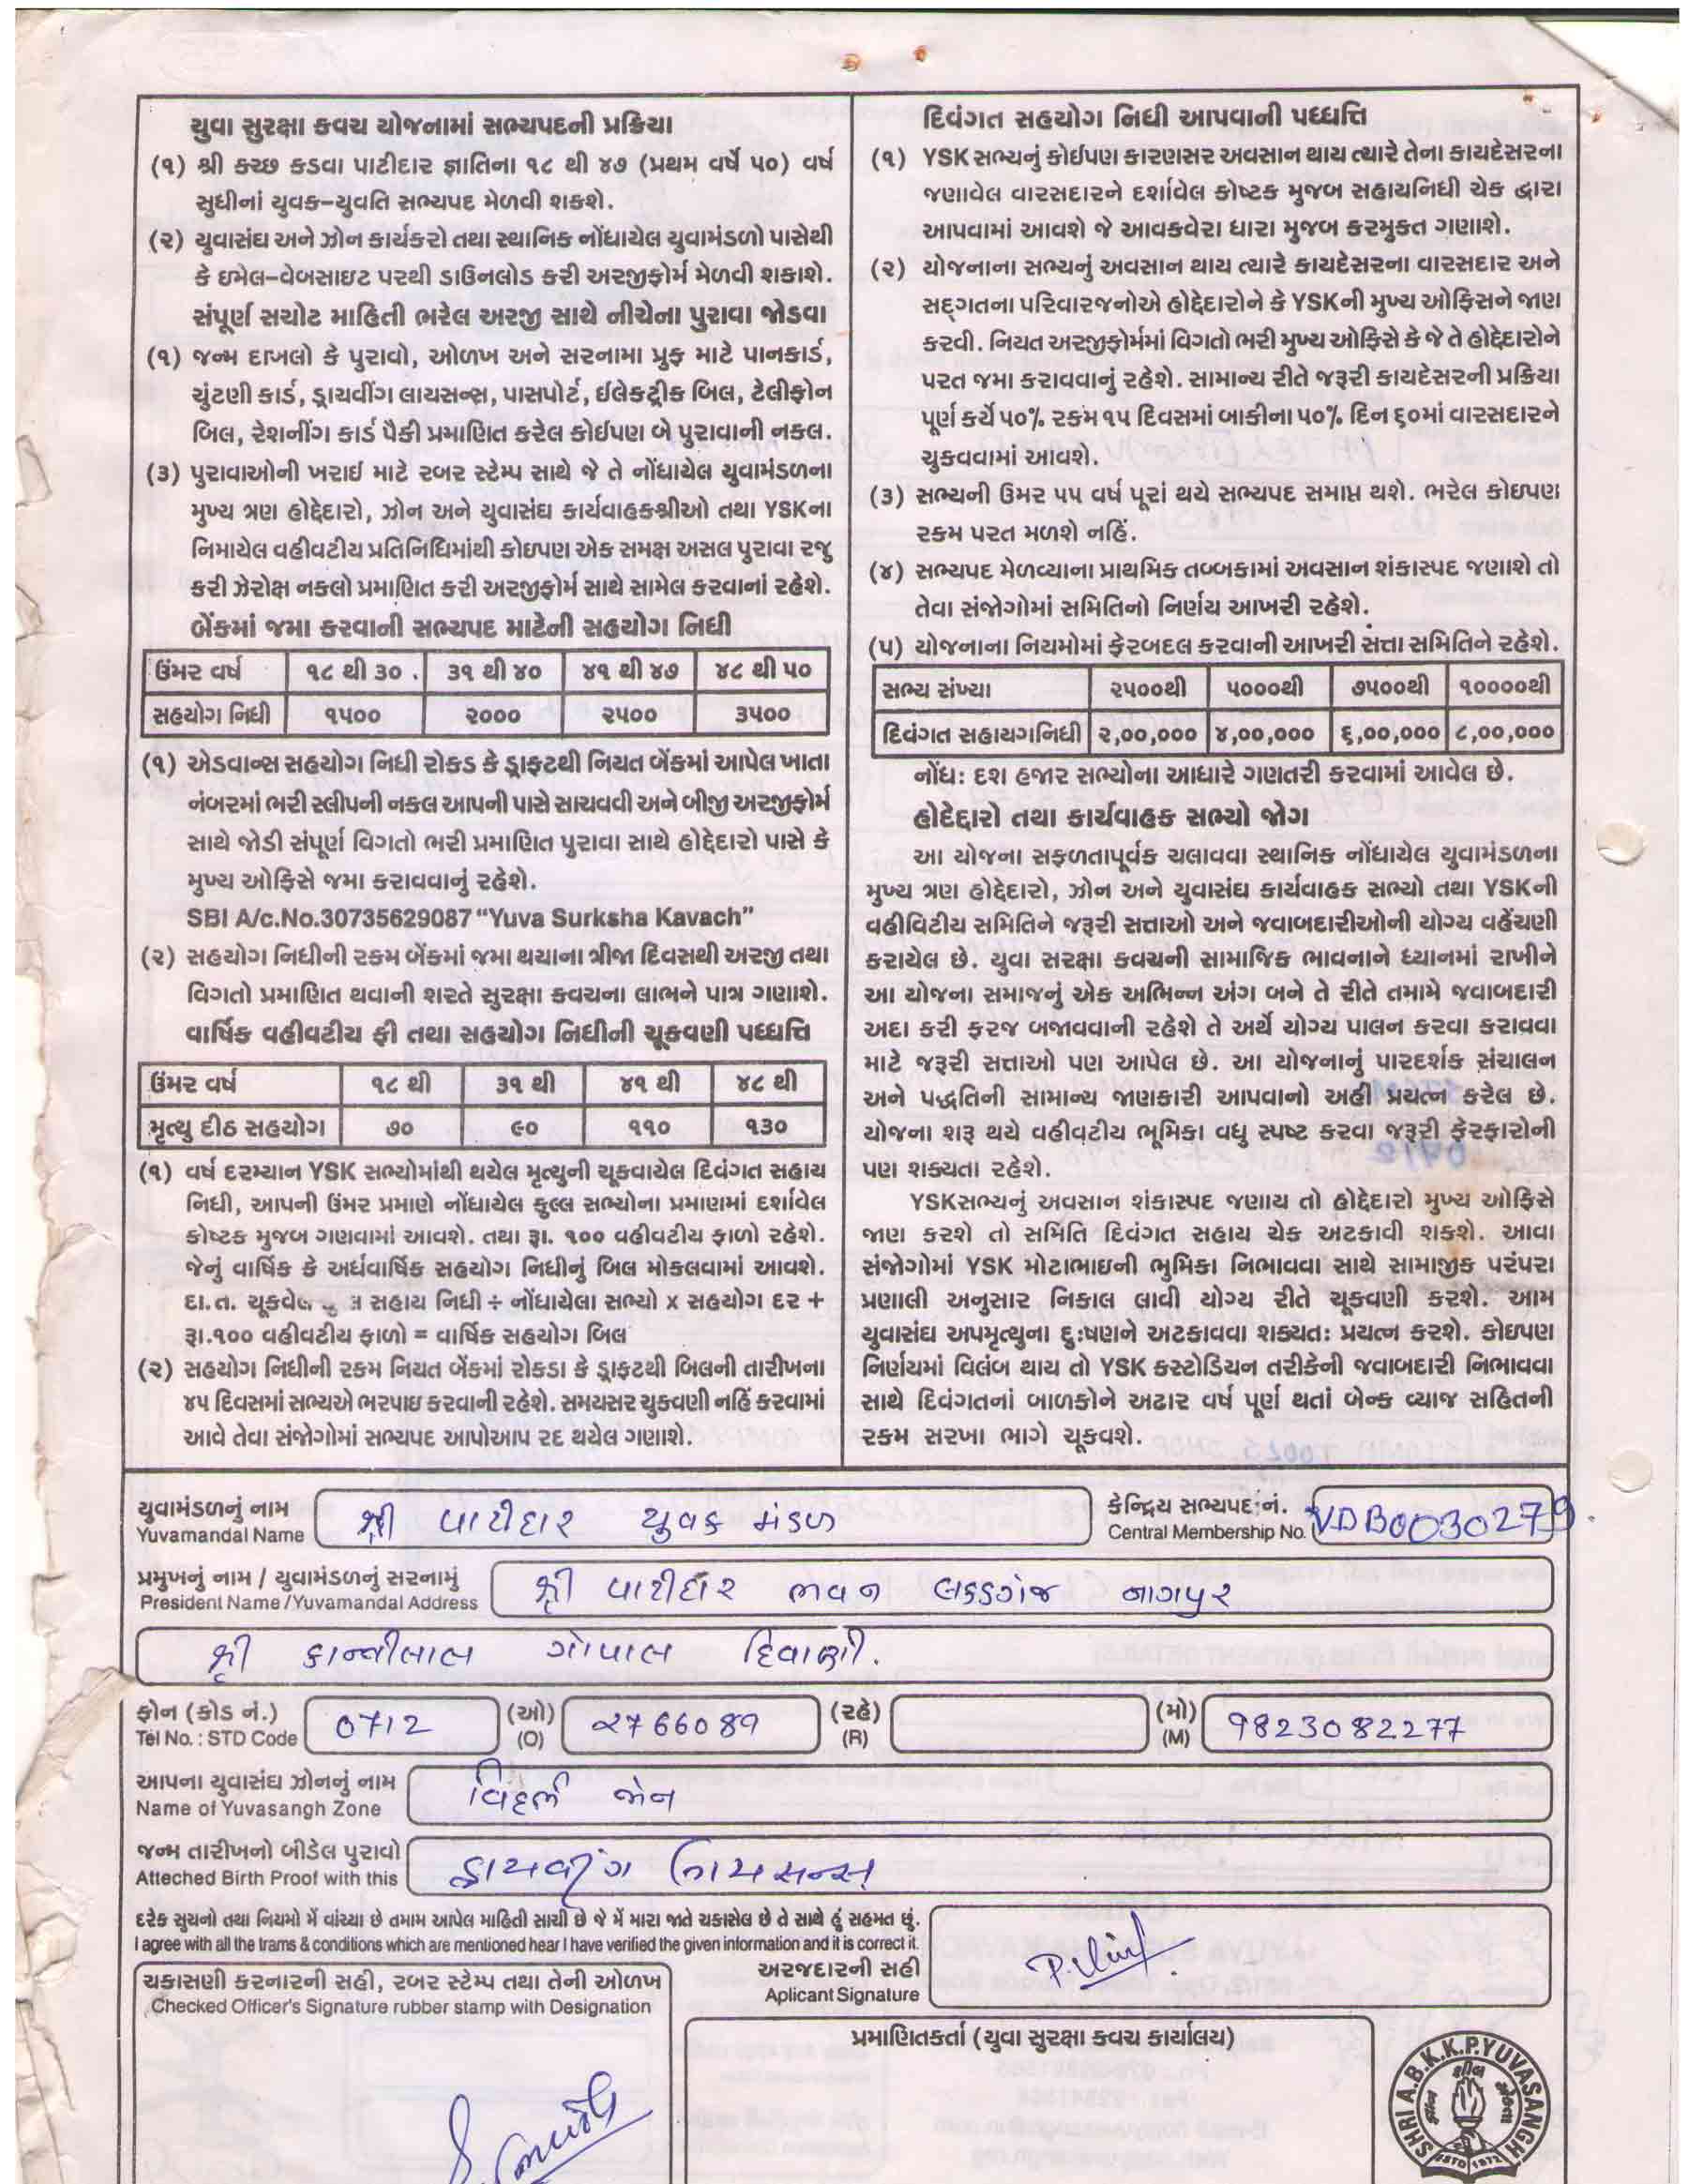 યુવા સુરક્ષા કવચ યોજનામાં સભ્યપદની પ્રક્રિયા
(૧) શ્રી કચ્છ કડવા પાટીદાર જ્ઞાતિના ૧૮ થી ૪૭ (પ્રથમ વર્ષે ૫૦) વર્ષ
સુધીનાં યુવક-યુવતિ સભ્યપદ મેળવી શકશે.
(૨) યુવાસંઘ અને ઝોન કાર્યકરો તથા સ્થાનિક નોંધાયેલ યુવામંડળો પાસેથી
કે ઇમેલ-વેબસાઇટ પરથી ડાઉનલોડ કરી અરજીફોર્મ મેળવી શકાશે.
સંપૂર્ણ સચોટ માહિતી ભરેલ અરજી સાથે નીચેના પુરાવા જોડવા
(૧) જન્મ દાખલો કે પુરાવો, ઓળખ અને સરનામા પ્રુફ માટે પાનકાર્ડ,
ચુંટણી કાર્ડ, ડ્રાયવીંગ લાયસન્સ, પાસપોર્ટ, ઈલેક્ટ્રીક બિલ, ટેલીફોન
બિલ, રેશનીંગ કાર્ડ પૈકી પ્રમાણિત કરેલ કોઈપણ બે પુરાવાની નકલ.
(૩) પુરાવાઓની ખરાઈ માટે રબર સ્ટેમ્પ સાથે જે તે નોંધાયેલ યુવામંડળના
મુખ્ય ત્રણ હોદ્દેદારો, ઝોન અને યુવાસંઘ કાર્યવાહકશ્રીઓ તથા YSKના
નિમાયેલ વહીવટીય પ્રતિનિધિમાંથી કોઇપણ એક સમક્ષ અસલ પુરાવા રજુ
કરી ઝેરોક્ષ નકલો પ્રમાણિત કરી અરજીફોર્મ સાથે સામેલ કરવાનાં રહેશે.
બેંકમાં જમા કરવાની સભ્યપદ માટેની સહયોગ નિધી
ઉંમર વર્ષ ૧૮ થી ૩૦ . ૩૧ થી ૪૦ ૪૧ થી ૪૭ ૪૮ થી ૫૦
સહયોગ નિધી ૧૫૦૦ ૨૦૦૦ ૨૫૦૦ ૩૫૦૦
(૧) એડવાન્સ સહયોગ નિધી રોકડ કે ડ્રાફ્ટથી નિયત બેંકમાં આપેલ ખાતા
નંબરમાં ભરી સ્લીપની નકલ આપની પાસે સાચવવી અને બીજી અરજીફોર્મ
સાથે જોડી સંપૂર્ણ વિગતો ભરી પ્રમાણિત પુરાવા સાથે હોદ્દેદારો પાસે કે
મુખ્ય ઓફિસે જમા કરાવવાનું રહેશે.
SBI A/c.No.30735629087 “Yuva Surksha Kavach”
(૨) સહયોગ નિધીની રકમ બેંકમાં જમા થયાના ત્રીજા દિવસથી અરજી તથા
વિગતો પ્રમાણિત થવાની શરતે સુરક્ષા કવચના લાભને પાત્ર ગણાશે.
વાર્ષિક વહીવટીય ફી તથા સહયોગ નિધીની ચૂકવણી પધ્ધતિ
ઉંમર વર્ષ ૧૮ થી ૩૧ થી ૪૧ થી ૪૮ થી
મૃત્યુ દીઠ સહયોગ ૭૦ ૯૦ ૧૧૦ ૧૩૦
(૧) વર્ષ દરમ્યાન YSK સભ્યોમાંથી થયેલ મૃત્યુની ચૂકવાયેલ દિવંગત સહાય
નિધી, આપની ઉંમર પ્રમાણે નોંધાયેલ કુલ્લ સભ્યોના પ્રમાણમાં દર્શાવેલ
કોષ્ટક મુજબ ગણવામાં આવશે. તથા રૂા. ૧૦૦ વહીવટીય ફાળો રહેશે.
જેનું વાર્ષિક કે અર્ધવાર્ષિક સહયોગ નિધીનું બિલ મોકલવામાં આવશે.
દા.ત. ચૂકવેલ સહાય નિધી ÷ નોંધાયેલા સભ્યો x સહયોગ દર +
રૂા.૧૦૦ વહીવટીય ફાળો = વાર્ષિક સહયોગ બિલ
(૨) સહયોગ નિધીની રકમ નિયત બેંકમાં રોકડા કે ડ્રાફ્ટથી બિલની તારીખના
૪૫ દિવસમાં સભ્યએ ભરપાઇ કરવાની રહેશે. સમયસર ચુકવણી નહિં કરવામાં
આવે તેવા સંજોગોમાં સભ્યપદ આપોઆપ રદ થયેલ ગણાશે.
દિવંગત સહયોગ નિધી આપવાની પધ્ધતિ
(૧) YSK સભ્યનું કોઈપણ કારણસર અવસાન થાય ત્યારે તેના કાયદેસરના
જણાવેલ વારસદારને દર્શાવેલ કોષ્ટક મુજબ સહાયનિધી ચેક દ્વારા
આપવામાં આવશે જે આવકવેરા ધારા મુજબ કરમુક્ત ગણાશે.
(૨) યોજનાના સભ્યનું અવસાન થાય ત્યારે કાયદેસરના વારસદાર અને
સદ્‌ગતના પરિવારજનોએ હોદ્દેદારોને કે YSKની મુખ્ય ઓફિસને જાણ
કરવી. નિયત અરજીફોર્મમાં વિગતો ભરી મુખ્ય ઓફિસે કે જે તે હોદ્દેદારોને
પરત જમા કરાવવાનું રહેશે. સામાન્ય રીતે જરૂરી કાયદેસરની પ્રક્રિયા
પૂર્ણ કર્યે ૫૦% રકમ ૧૫ દિવસમાં બાકીના ૫૦% દિન ૬૦માં વારસદારને
ચુકવવામાં આવશે.
(૩) સભ્યની ઉમર ૫૫ વર્ષ પૂરાં થયે સભ્યપદ સમાપ્ત થશે. ભરેલ કોઇપણ
રકમ પરત મળશે નહિં.
(૪) સભ્યપદ મેળવ્યાના પ્રાથમિક તબ્બકામાં અવસાન શંકાસ્પદ જણાશે તો
તેવા સંજોગોમાં સમિતિનો નિર્ણય આખરી રહેશે.
(૫) યોજનાના નિયમોમાં ફેરબદલ કરવાની આખરી સત્તા સમિતિને રહેશે.
સભ્ય સંખ્યા ૨૫૦૦થી ૫૦૦૦થી ૭૫૦૦થી ૧૦૦૦૦થી
દિવંગત સહાયગનિધી ૨,૦૦,૦૦૦ ૪,૦૦,૦૦૦ ૬,૦૦,૦૦૦ ૮,૦૦,૦૦૦
નોંધ: દશ હજાર સભ્યોના આધારે ગણતરી કરવામાં આવેલ છે.
હોદેદ્દારો તથા કાર્યવાહક સભ્યો જોગ
આ યોજના સફળતાપૂર્વક ચલાવવા સ્થાનિક નોંધાયેલ યુવામંડળના
મુખ્ય ત્રણ હોદ્દેદારો, ઝોન અને યુવાસંઘ કાર્યવાહક સભ્યો તથા YSKની
વહીવિટીય સમિતિને જરૂરી સત્તાઓ અને જવાબદારીઓની યોગ્ય વહેંચણી
કરાયેલ છે. યુવા સરક્ષા કવચની સામાજિક ભાવનાને ધ્યાનમાં રાખીને
આ યોજના સમાજનું એક અભિન્ન અંગ બને તે રીતે તમામે જવાબદારી
અદા કરી ફરજ બજાવવાની રહેશે તે અર્થે યોગ્ય પાલન કરવા કરાવવા
માટે જરૂરી સત્તાઓ પણ આપેલ છે. આ યોજનાનું પારદર્શક સંચાલન
અને પદ્ધતિની સામાન્ય જાણકારી આપવાનો અહીં પ્રયત્ન કરેલ છે.
યોજના શરૂ થયે વહીવટીય ભૂમિકા વધુ સ્પષ્ટ કરવા જરૂરી ફેરફારોની
પણ શક્યતા રહેશે.
YSKસભ્યનું અવસાન શંકાસ્પદ જણાય તો હોદ્દેદારો મુખ્ય ઓફિસે
જાણ કરશે તો સમિતિ દિવંગત સહાય ચેક અટકાવી શકશે. આવા
સંજોગોમાં YSK મોટાભાઇની ભુમિકા નિભાવવા સાથે સામાજીક પરંપરા
પ્રણાલી અનુસાર નિકાલ લાવી યોગ્ય રીતે ચૂકવણી કરશે. આમ
યુવાસંઘ અપમૃત્યુના દુઃષણને અટકાવવા શક્યતઃ પ્રયત્ન કરશે. કોઇપણ
નિર્ણયમાં વિલંબ થાય તો YSK કસ્ટોડિયન તરીકેની જવાબદારી નિભાવવા
સાથે દિવંગતનાં બાળકોને અઢાર વર્ષ પૂર્ણ થતાં બેન્ક વ્યાજ સહિતની
રકમ સરખા ભાગે ચૂકવશે.
યુવામંડળનું નામ શ્રી પાટીદાર યુવક મંડળ કેન્દ્રિય સભ્યપદ નં.
Yuvamandal Name Central Membership No. VDB0030279.
પ્રમુખનું નામ / યુવામંડળનું સરનામું શ્રી પાટીદાર ભવન લકડગંજ નાગપુર
President Name /Yuvamandal Address
શ્રી કાન્તીલાલ ગોપાલ દિવાણી.
ફોન (કોડ નં.) 0712 (ઓ) 2766089 (રહે) (મો) 9823082277
Tel No. : STD Code (O) (R) (M)
આપના યુવાસંઘ ઝોનનું નામ વિદર્ભ જોન
Name of Yuvasangh Zone
જન્મ તારીખનો બીડેલ પુરાવો ડ્રાયવીંગ લાયસન્સ
Atteched Birth Proof with this
દરેક સુચનો તથા નિયમો મેં વાંચ્યા છે તમામ આપેલ માહિતી સાચી છે જે મેં મારા જાતે ચકાસેલ છે તે સાથે હું સહમત છું.
I agree with all the trams & conditions which are mentioned hear I have verified the given information and it is correct it.
અરજદારની સહી
Aplicant Signature
ચકાસણી કરનારની સહી, રબર સ્ટેમ્પ તથા તેની ઓળખ
Checked Officer's Signature rubber stamp with Designation
પ્રમાણિતકર્તા (યુવા સુરક્ષા કવચ કાર્યાલય)
SHRI A.B.K.K.P.YUVASANGH
ESTD 1972